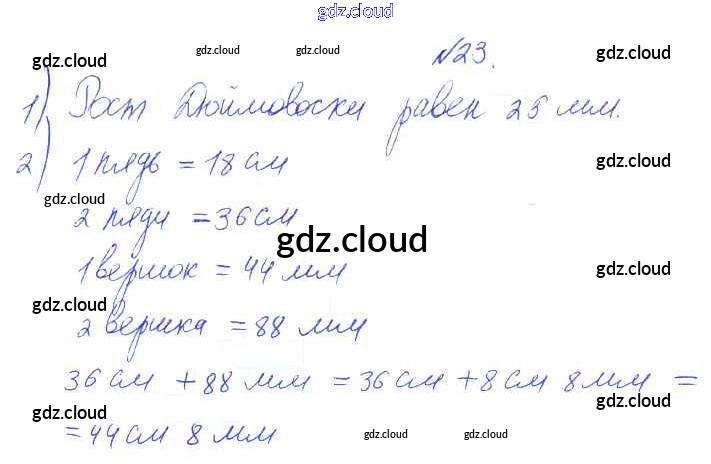 gdz.cloud
gdz.cloud gdz.cloud №23. gdz.cloud
gdz.cloud
1) Рост Дюймовочки равен 25 мм.
2) 1 пядь = 18 см gdz.cloud
gdz.cloud
2 пяди = 36 см
gdz.cloud
1 вершок = 44 мм gdz.cloud
gdz.cloud
2 вершка = 88 мм
36 см + 88 мм = 36 см + 8 см 8 мм =
gdz.cloud gdz.cloud
= 44 см 8 мм gdz.cloud gdz.cloud